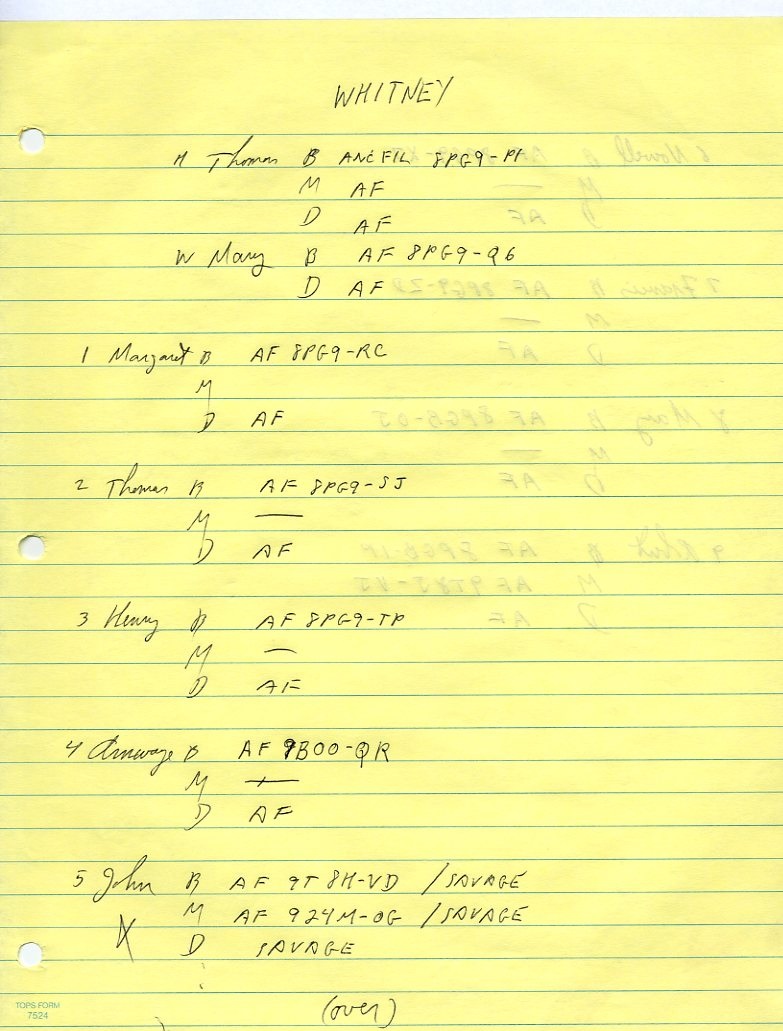 WHITNEY
H Thomas B ANC FIL 8PG9-P1
M AF
D AF
W Mary B AF 8PG9-Q6
D AF
1 Margaret B AF 8PG9-RC
M
D AF
2 Thomas B AF 8PG9-SJ
M —
D AF
3 Henry B AF 8PG9-TP
M —
D AF
4 B AF 9B00-QR
M —
D AF
5 John B AF 9T8H-VD / SAVAGE
X M AF 924M-0G / SAVAGE
D SAVAGE
(over)
TOPS FORM
7524